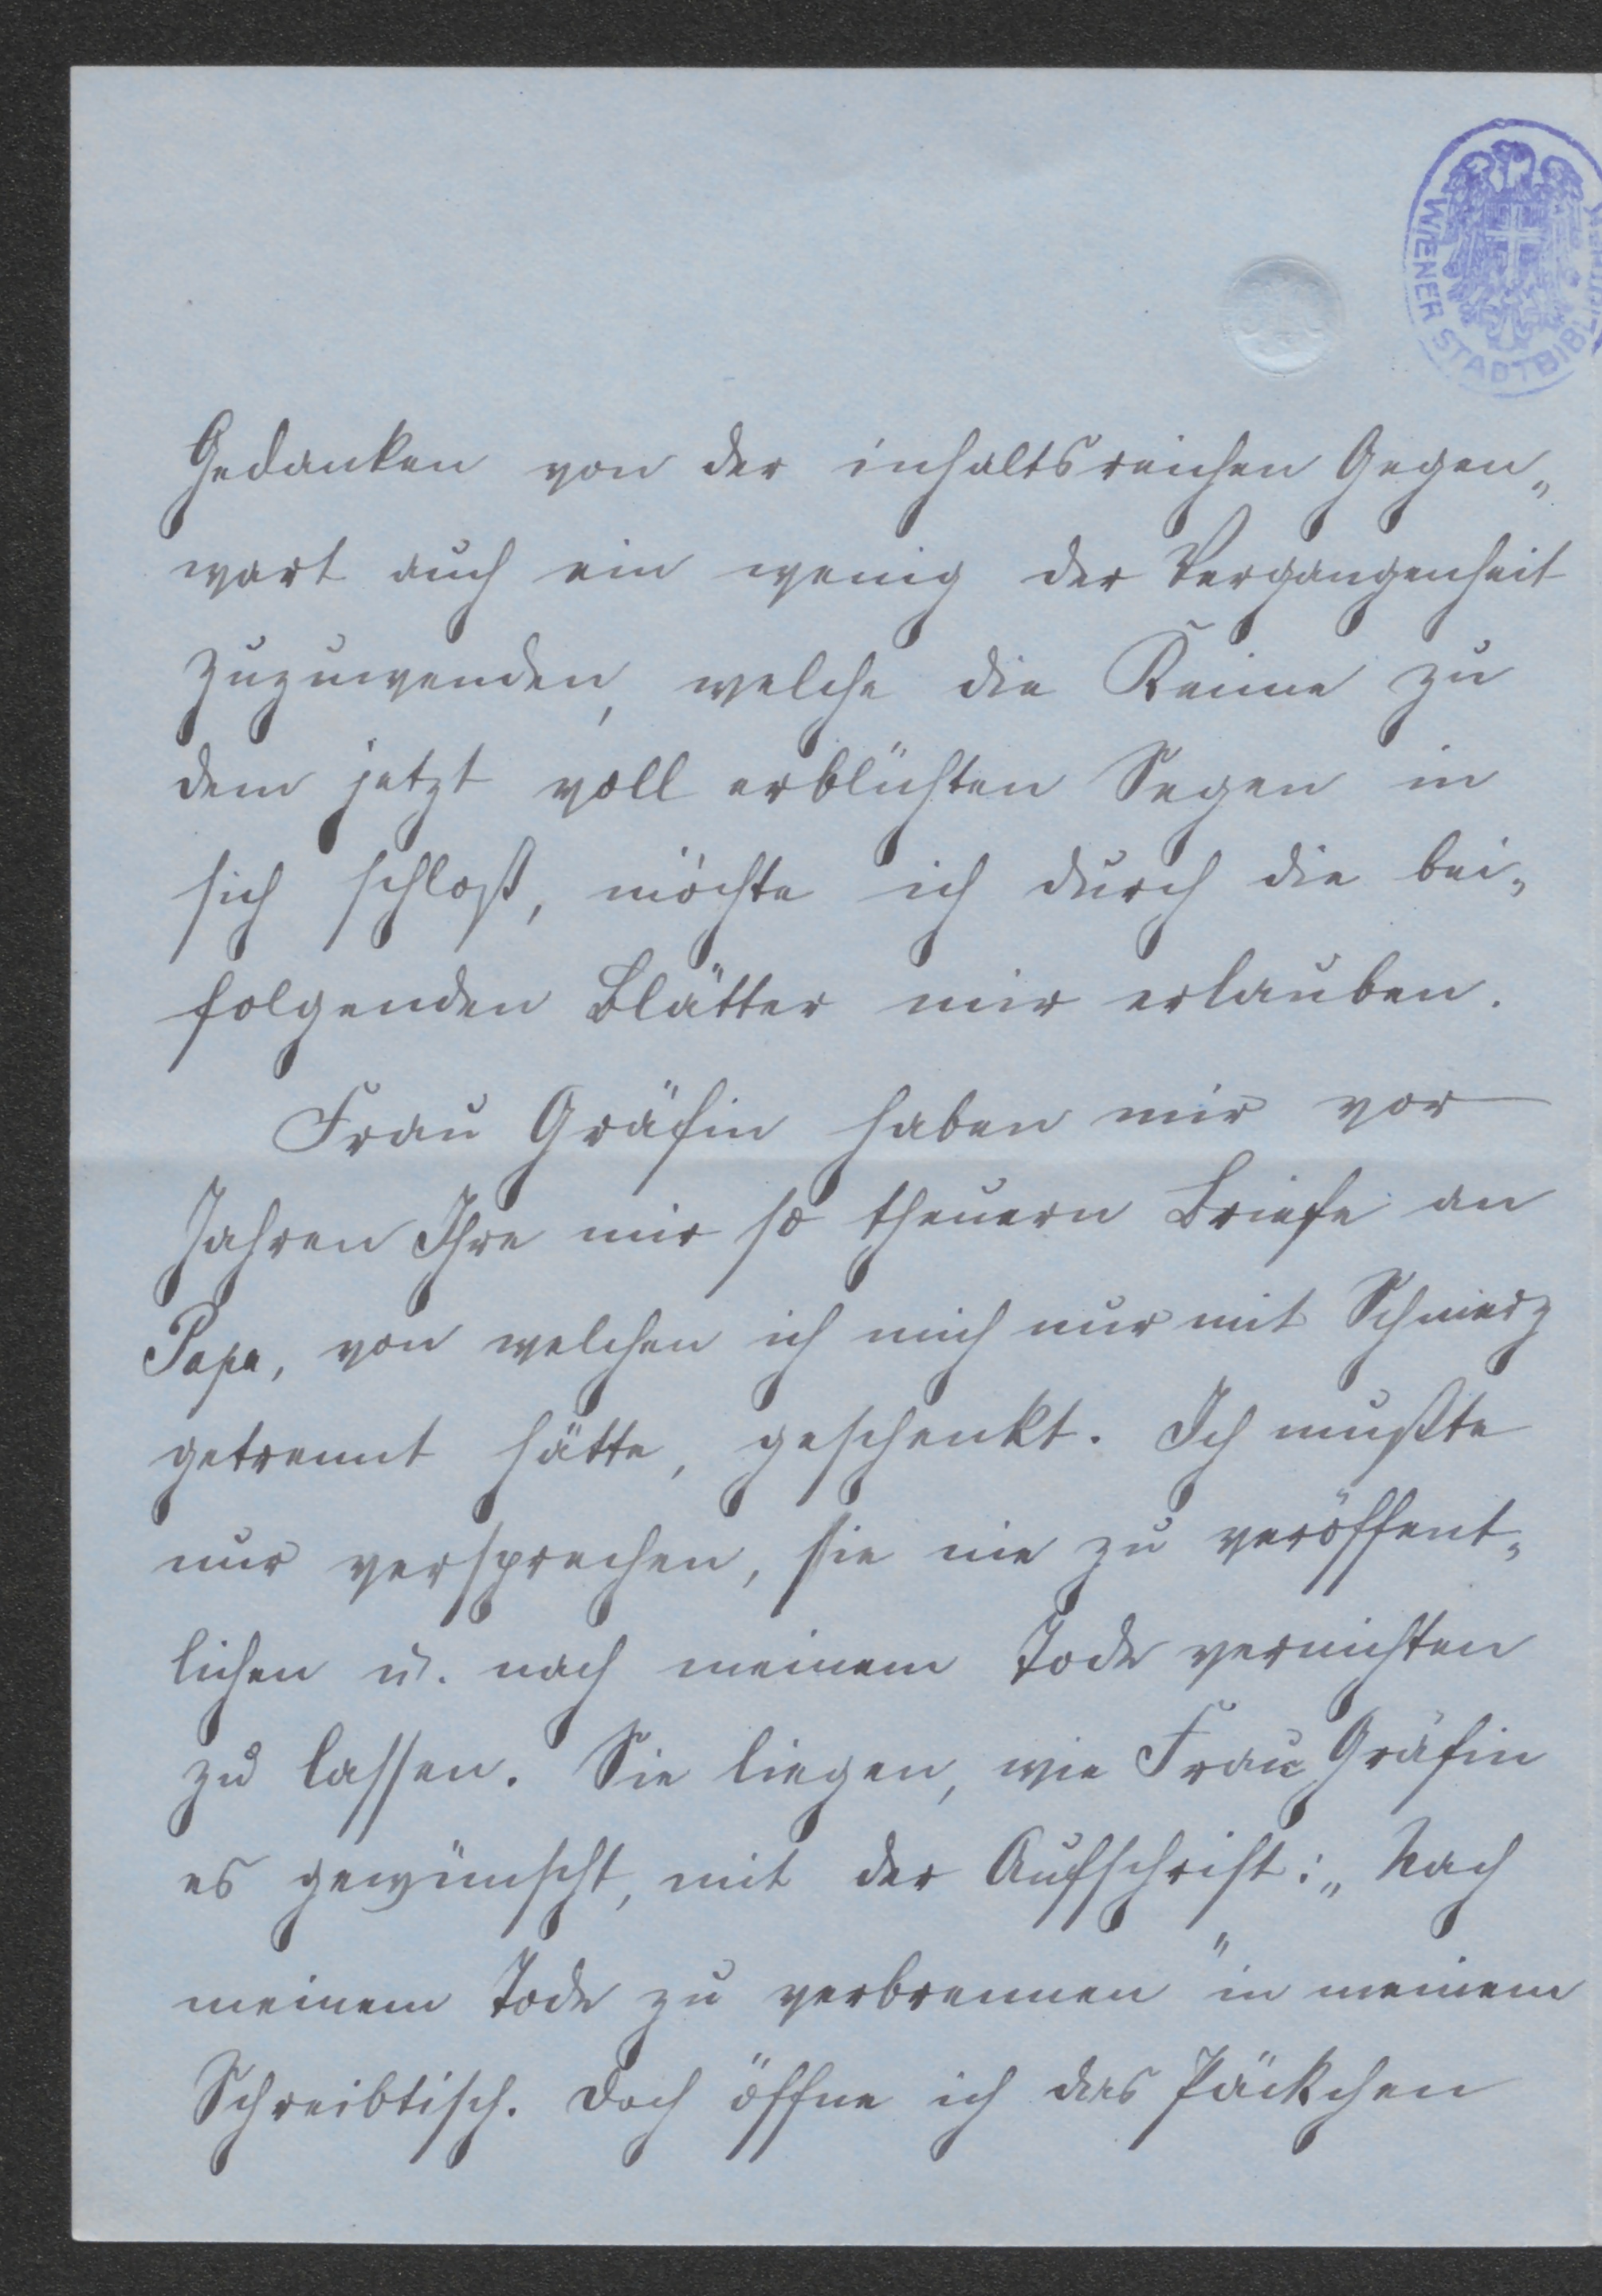 WIENER STADTBIBL
Gedanken von der inhaltsreichen Gegen„
wart auch ein wenig der Vergangenheit
zuzuwenden, welche die Keime zu
dem jetzt voll erblühten Segen in
sich schloß, möchte ich durch die bei„
folgenden Blätter mir erlauben.
Frau Gräfin haben mir vor
Jahren Ihre mir so theuern Briefe an
Papa, von welchen ich mich nur mit Schmerz
getrennt hätte, geschenkt. Ich mußte
nur versprechen, sie nie zu veröffent„
lichen u. nach meinem Tode vernichten
zu lassen. Sie liegen, wie Frau Gräfin
es gewünscht, mit der Aufschrift: „Nach
meinem Tode zu verbrennen" in meinem
Schreibtisch. Doch öffne ich das Päckchen